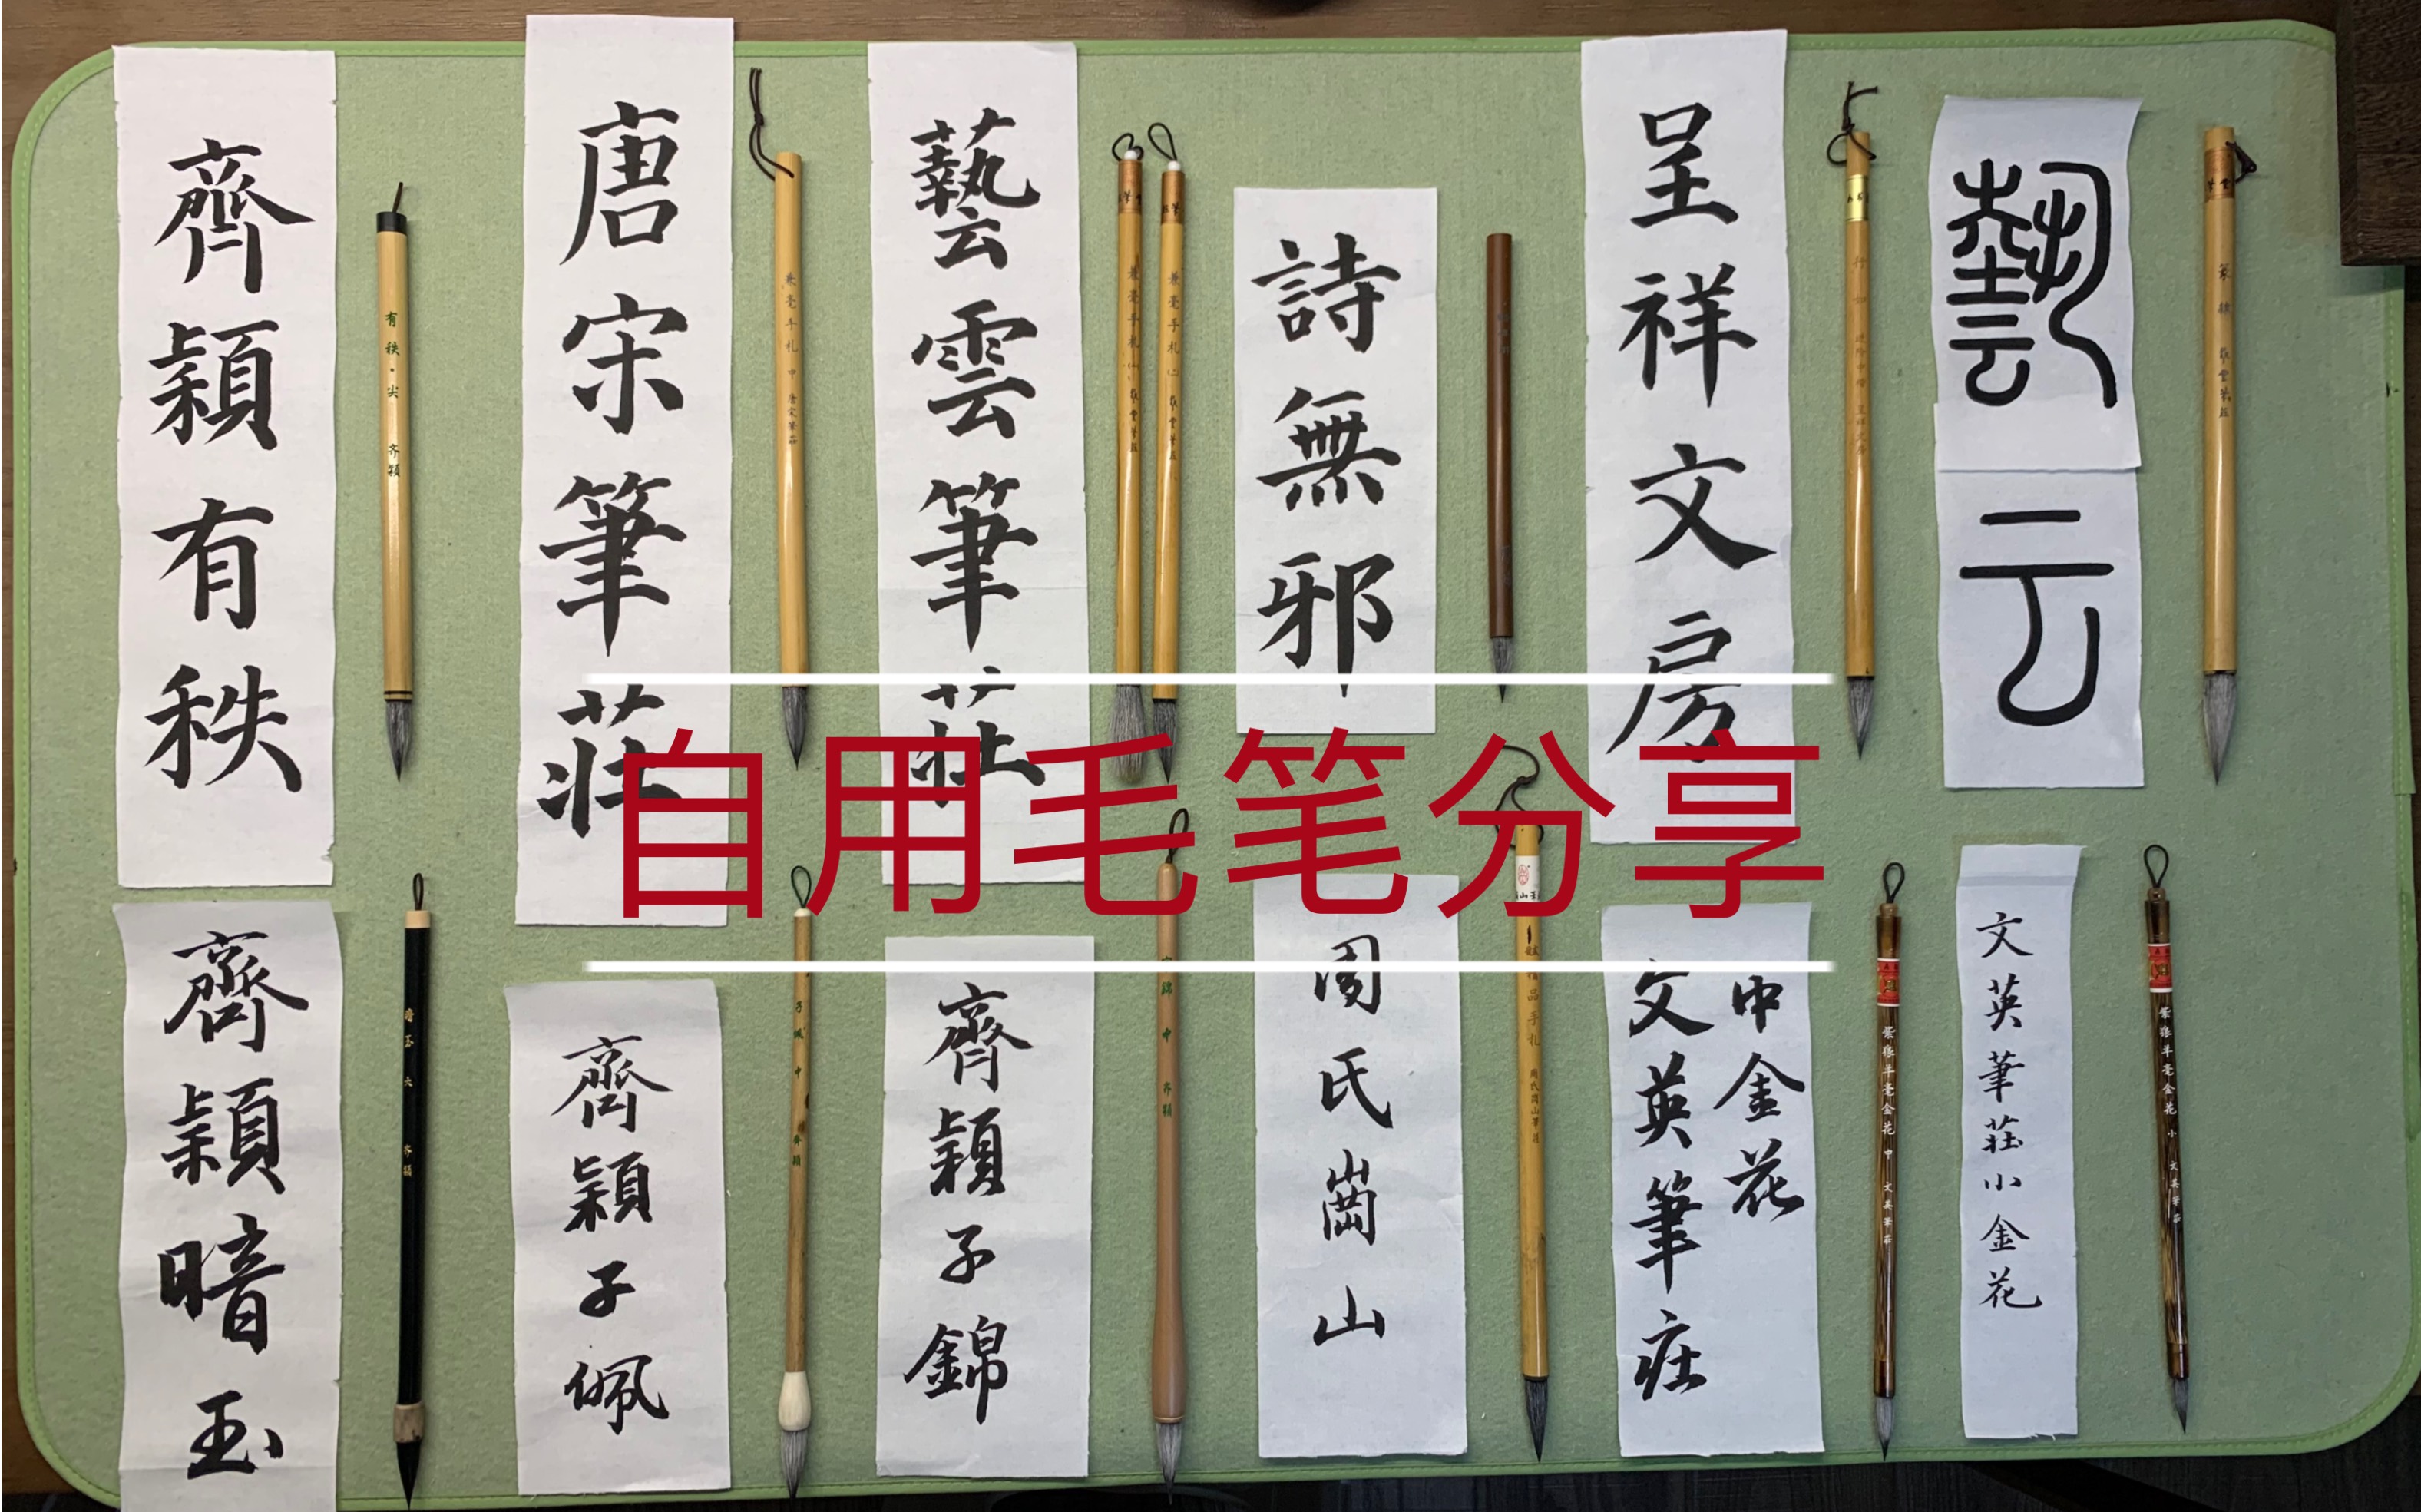 齊穎有秩
有秩·尖 齐穎
唐宋筆莊
兼毫手札 中 唐宋筆莊
藝雲筆莊
兼毫手札
兼毫手札
詩無邪
呈祥文房
藝云
自用毛笔分享
齊穎暗玉
暗玉 六 齐穎
齊穎子佩
子佩 中 齐穎
齊穎子錦
子錦 中 齐穎
周氏崗山
品手札 周氏崗山筆莊
中金花
文英筆莊
紫狼羊毫金花 中 文英筆莊
文英筆莊小金花
紫狼羊毫金花 小 文英筆莊